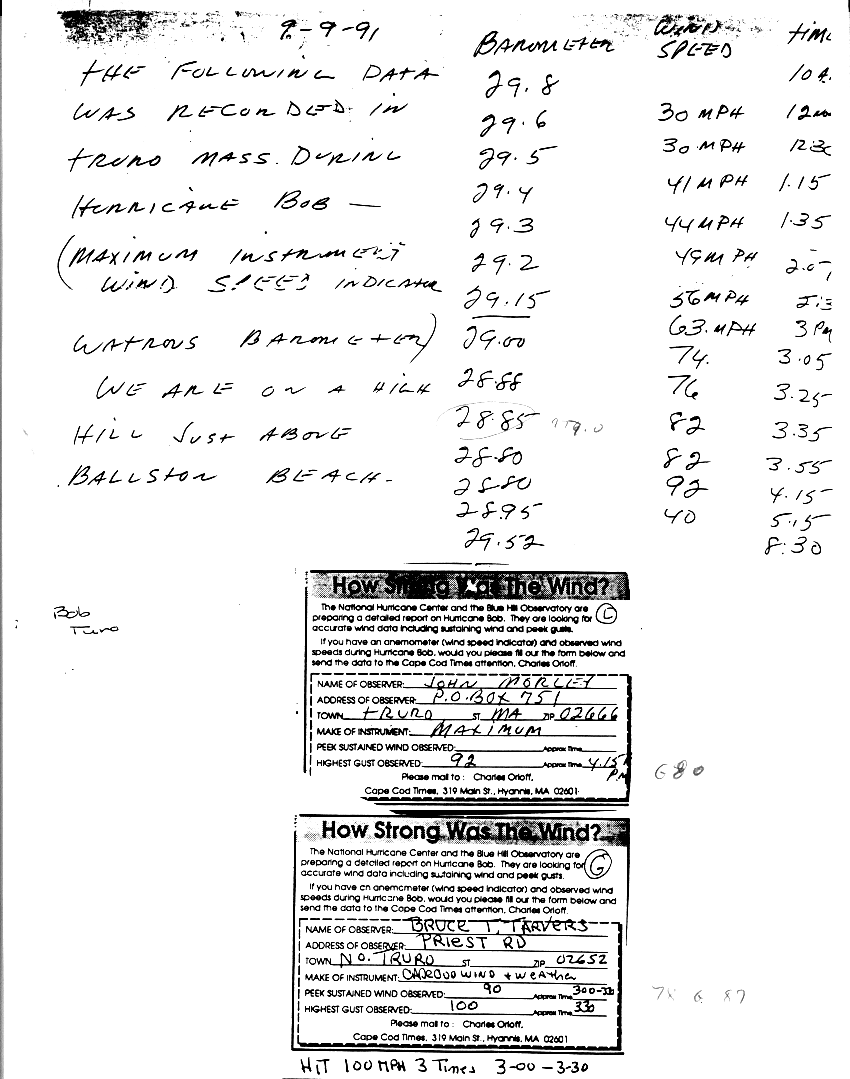 9-9-91
THE FOLLOWING DATA
WAS RECORDED IN
TRURO MASS. DURING
HURRICANE BOB —
(MAXIMUM INSTRUMENT
WIND SPEED INDICATOR
WATROUS BAROMETER)
WE ARE ON A HIGH
HILL JUST ABOVE
BALLSTON BEACH-
BAROMETER WIND SPEED TIME
29.8 10 A.
29.6 30 MPH 12
29.5 30 MPH
29.4 41 MPH 1.15
29.3 44 MPH 1.35
29.2 49 MPH
29.15 56 MPH
29.00 63. MPH 3 PM
28.88 74. 3.05
28.85 76 3.25
28.80 82 3.35
28.80 82 3.55
28.95 92 4.15
29.52 40 5.15
8:30
Bob
How Strong Was The Wind?
The National Hurricane Center and the Blue Hill Observatory are
preparing a detailed report on Hurricane Bob. They are looking for
accurate wind data including sustaining wind and peek gusts.
If you have an anemometer (wind speed indicator) and observed wind
speeds during Hurricane Bob, would you please fill our the form below and
send the data to the Cape Cod Times attention, Charles Orloff.
NAME OF OBSERVER: JOHN MORLEY
ADDRESS OF OBSERVER: P.O. BOX 751
TOWN TRURO ST MA ZIP 02666
MAKE OF INSTRUMENT: MAXIMUM
PEEK SUSTAINED WIND OBSERVED: Approx Time
HIGHEST GUST OBSERVED: 92 Approx Time 4.15 PM
Please mail to: Charles Orloff,
Cape Cod Times, 319 Main St., Hyannis, MA 02601
G80
How Strong Was The Wind?
G
The National Hurricane Center and the Blue Hill Observatory are
preparing a detailed report on Hurricane Bob. They are looking for
accurate wind data including sustaining wind and peek gusts.
If you have an anemometer (wind speed indicator) and observed wind
speeds during Hurricane Bob, would you please fill our the form below and
send the data to the Cape Cod Times attention, Charles Orloff.
NAME OF OBSERVER: BRUCE T. TARVERS
ADDRESS OF OBSERVER: PRIEST RD
TOWN NO. TRURO ST ZIP 02652
MAKE OF INSTRUMENT: WIND + WEATHER
PEEK SUSTAINED WIND OBSERVED: 90 Approx Time 300-330
HIGHEST GUST OBSERVED: 100 Approx Time 330
Please mail to: Charles Orloff,
Cape Cod Times, 319 Main St., Hyannis, MA 02601
HIT 100 MPH 3 Times 3-00 - 3-30